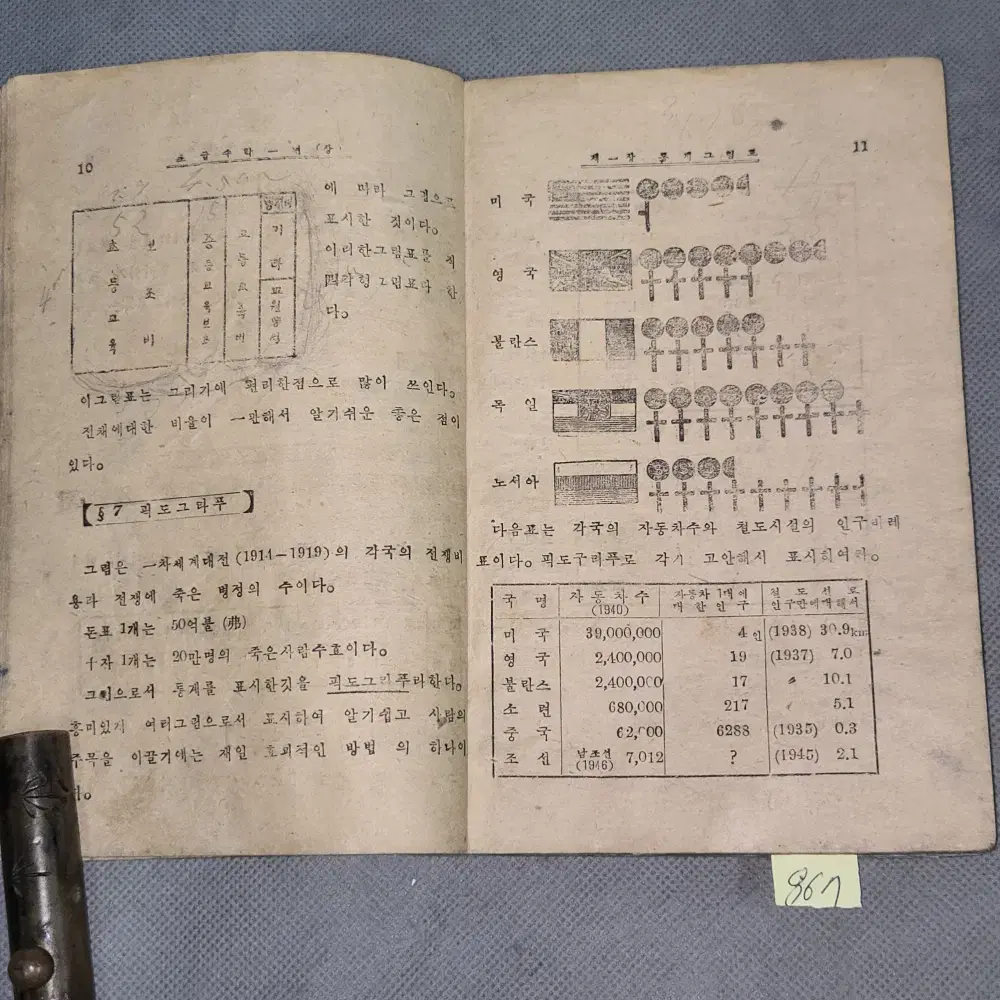 10
초급수학一년(상)
초등교육
보조비
중등교육보조
고등교육비
기타
교원양성
에 따라 그림으로
표시한 것이다。
이러한그림표를 직
四각형 그림표라 한
다。
이그림표는 그리기에 편리한점으로 많이 쓰인다。
전채에대한 비율이 一관해서 알기쉬운 좋은 점이
있다。
【§7 픽도그라푸】
그림은 一차세계대전(1914—1919)의 각국의 전쟁비
용과 전쟁에 죽은 병정의 수이다。
돈표 1개는 50억불(弗)
十자 1개는 20만명의 죽은사람수효이다。
그림으로서 통계를 표시한것을 픽도그리푸라한다。
흥미있게 여러그림으로서 표시하여 알기쉽고 사람의
주목을 이끌기에는 재일 효과적인 방법 의 하나이
다。
제一장 통계그림표
11
미국
영국
불란스
독일
노서아
다음표는 각국의 자동차수와 철도시설의 인구비례
표이다。 픽도구리푸로 각기 고안해서 표시하여라。
국명 자동차수 (1940) 자동차 1대에 대한인구 철도선로 인구만에대해서
미국 39,000,000 4인 (1938) 30.9km
영국 2,400,000 19 (1937) 7.0
불란스 2,400,000 17 〃 10.1
소련 680,000 217 〃 5.1
중국 62,000 6288 (1935) 0.3
조선 남조선 (1946) 7,012 ? (1945) 2.1
867